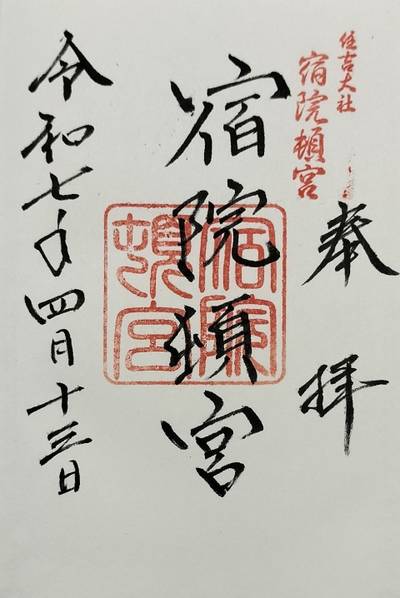 住吉大社
宿院頓宮
奉拝
宿院頓宮
宿院頓宮
令和七年四月十三日